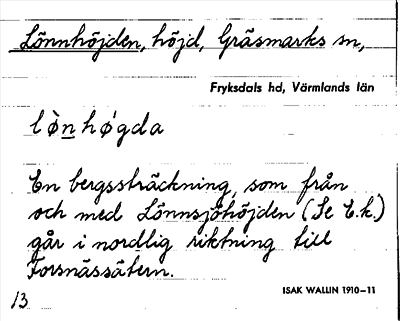 Lönnhöjden, höjd, Gräsmarks sn,
Fryksdals hd, Värmlands län
lò̀nhø̀gda
En bergssträckning, som från
och med Lönnsjöhöjden (Se E.k.)
går i nordlig riktning till
Forsnässätern.
ISAK WALLIN 1910-11
13